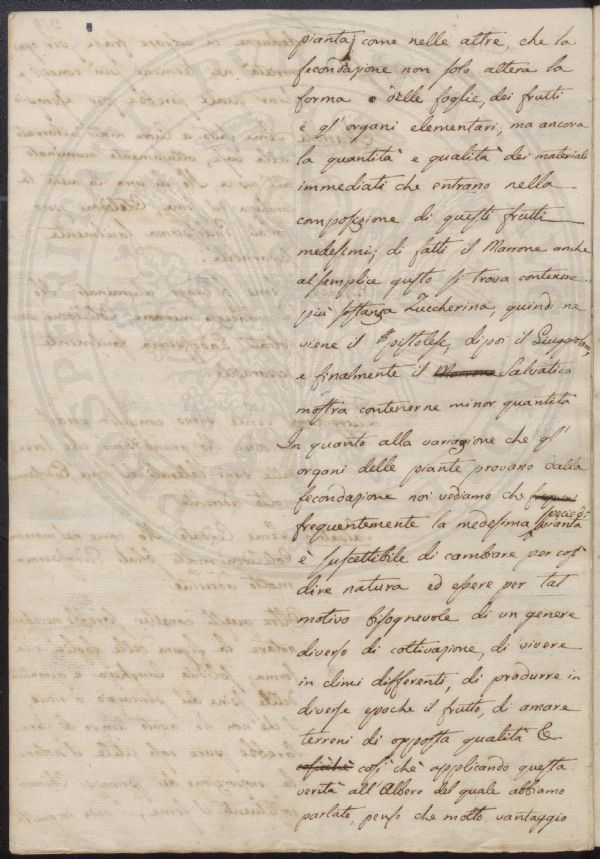 pianta, come nelle altre, che la
fecondazione non solo altera la
forma delle foglie, dei frutti
e gl' organi elementari, ma ancora
la quantità e qualità dei materiali
immediati che entrano nella
composizione di questi frutti
medesimi; di fatti il Marrone anche
al semplice gusto si trova contenere
più sostanza Zuccherina, quindi ne
viene il Pistolese, di poi il
e finalmente il Marrone Salvatico
mostra contenerne minor quantità
In quanto alla variazione che gl'
organi delle piante provano dalla
fecondazione noi vediamo che
specie di
frequentemente la medesima pianta
è suscettibile di cambiare per così
dire natura ed essere per tal
motivo bisognevole di un genere
diverso di coltivazione, di vivere
in climi differenti, di produrre in
diverse epoche il frutto, di amare
terreni di opposta qualità &.
cosichè così chè applicando questa
verità all' Albero del quale abbiamo
parlato, penso che molto vantaggio